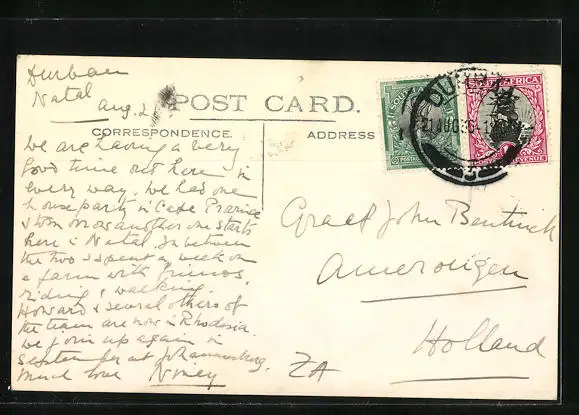 Durban
Natal
Aug. 21
POST CARD.
CORRESPONDENCE.
ADDRESS
SOUTH AFRICA
POSTAGE REVENUE
DURBAN
21 AUG 36
We are having a very
good time out here in
every way. We had one
house party in Cape Province
& tomorrow another one starts
here in Natal. In between
the two I spent a week on
a farm with friends,
riding & walking.
Howard & several others of
the team are now in Rhodesia.
We join up again in
September at Johannesburg.
Much love
Graaf John Bentinck
Amerongen
Holland
ZA